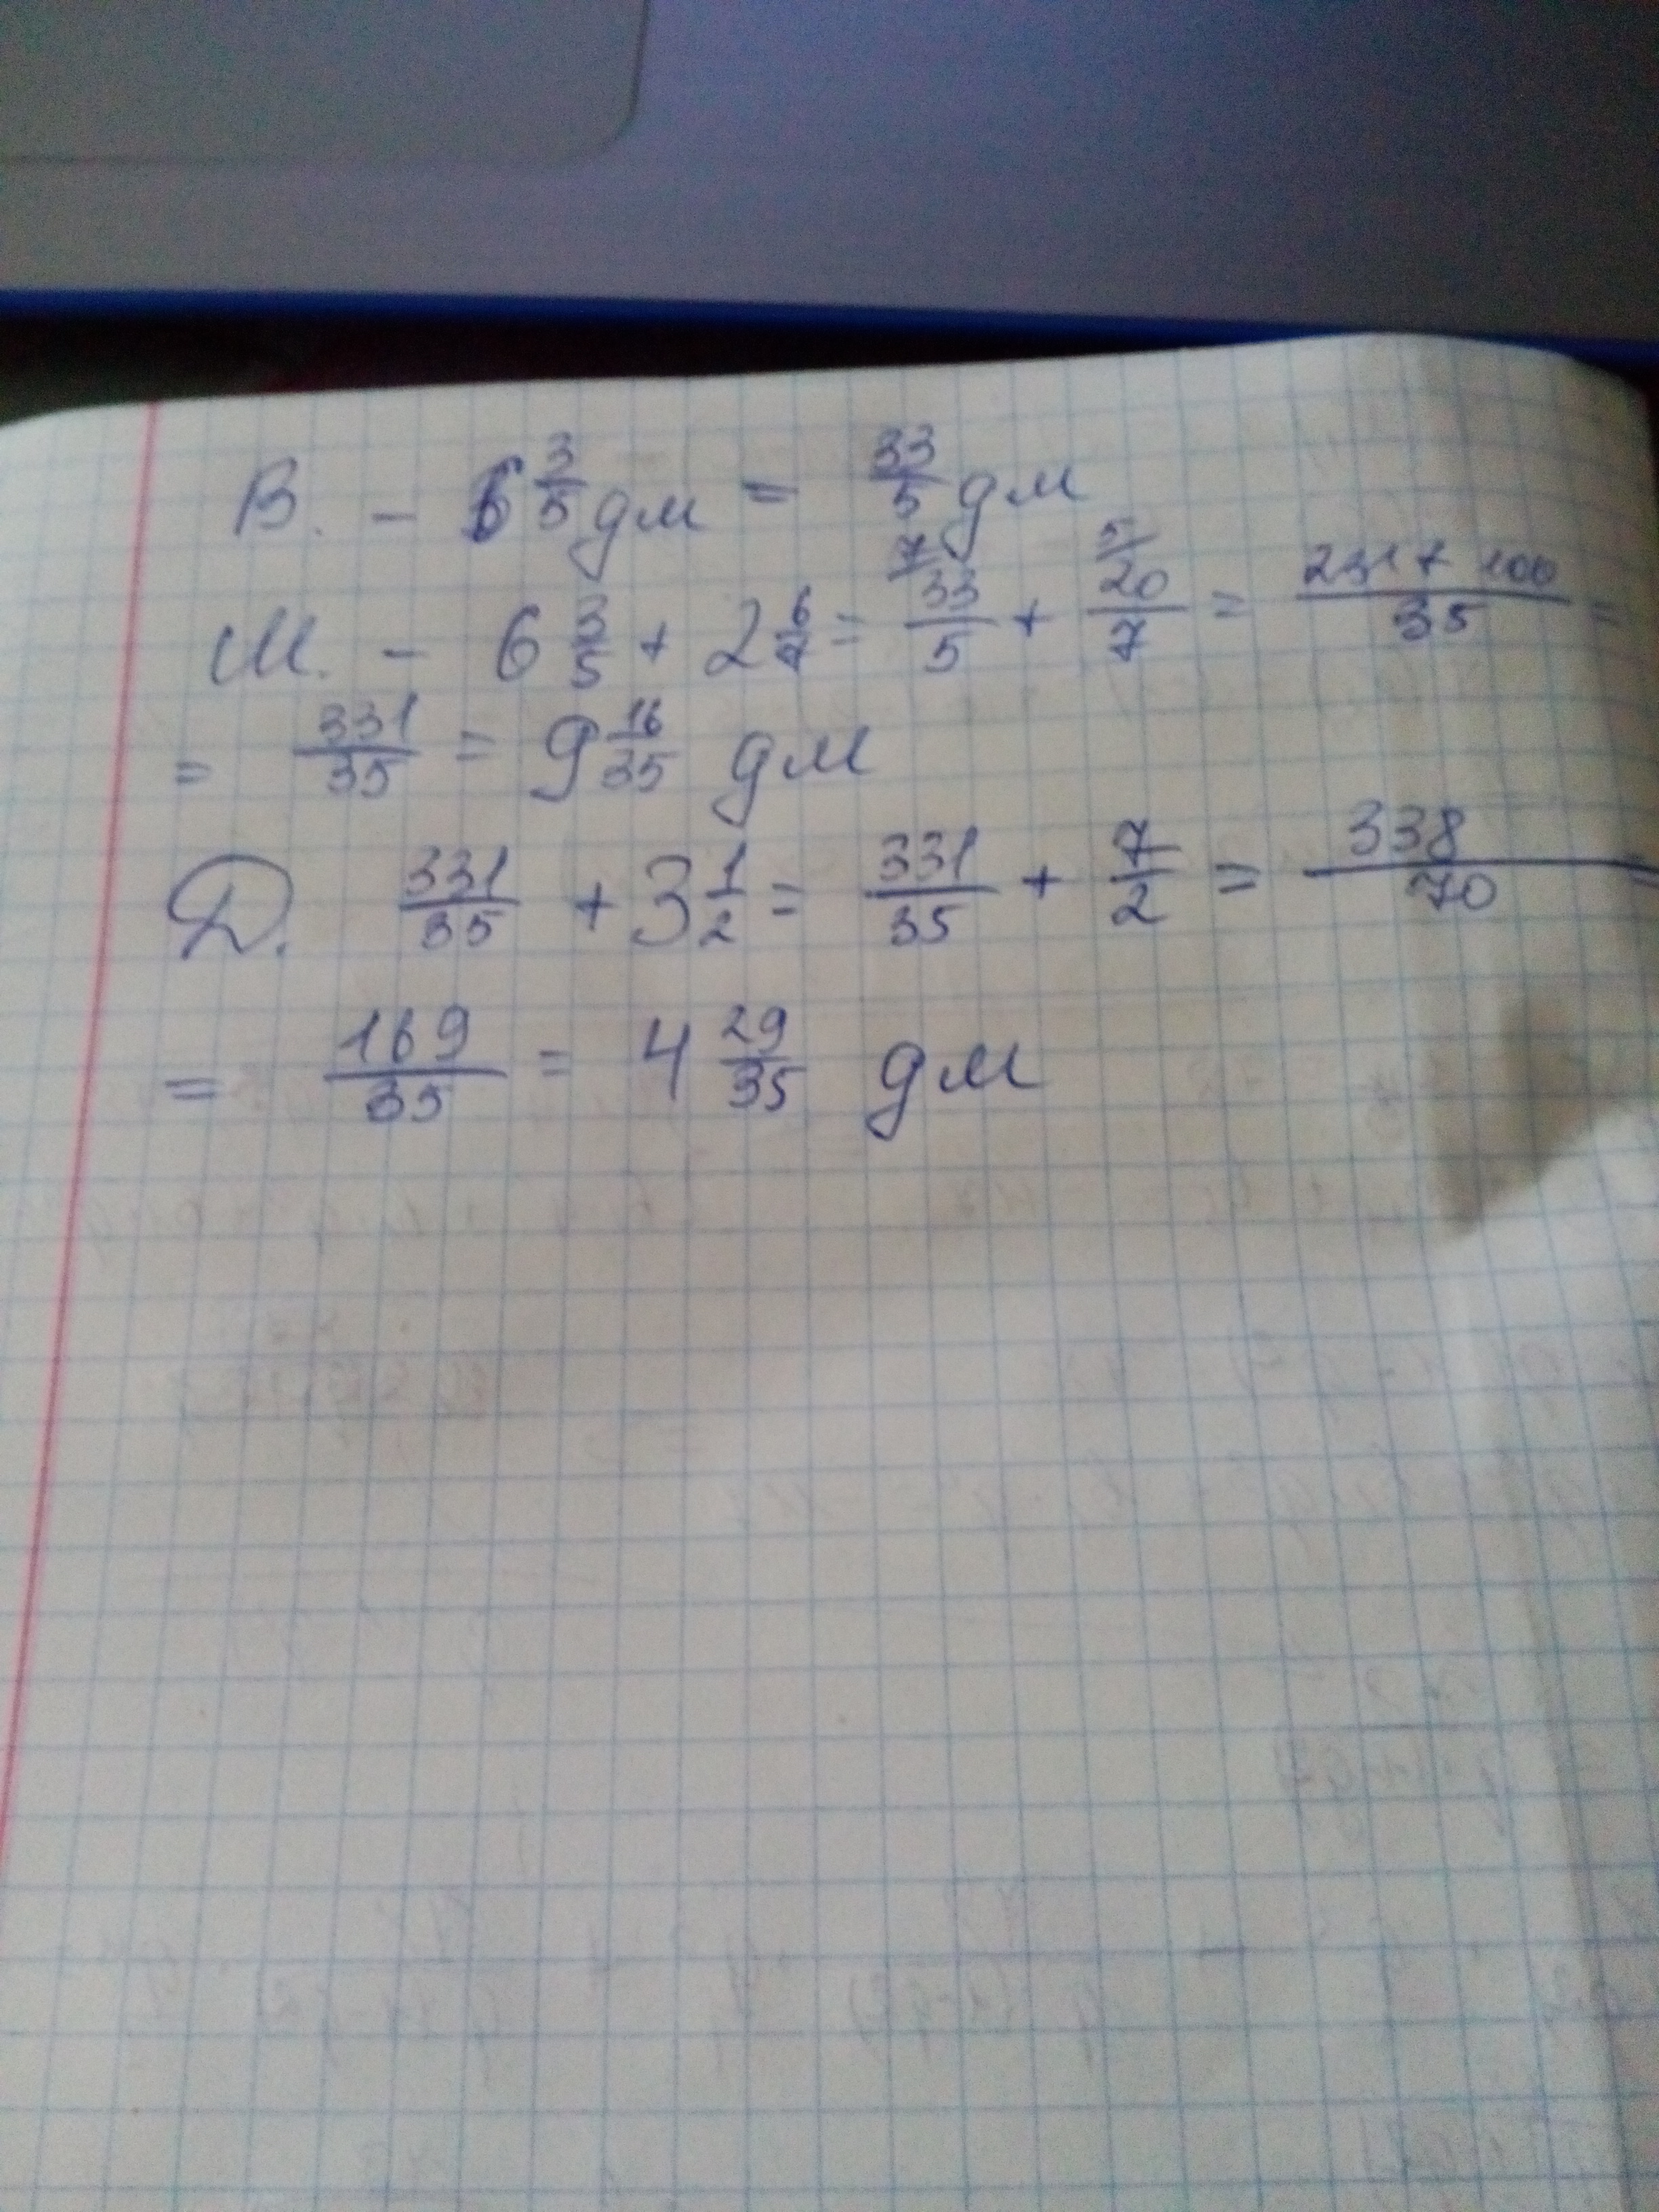 В. - 6 3/5 дм = 33/5 дм
М. - 6 3/5 + 2 6/7 = 7/ 33/5 + 5/ 20/7 = 231 + 100/35 =
= 331/35 = 9 16/35 дм
Д. 331/35 + 3 1/2 = 331/35 + 7/2 = 338/70 =
= 169/35 = 4 29/35 дм